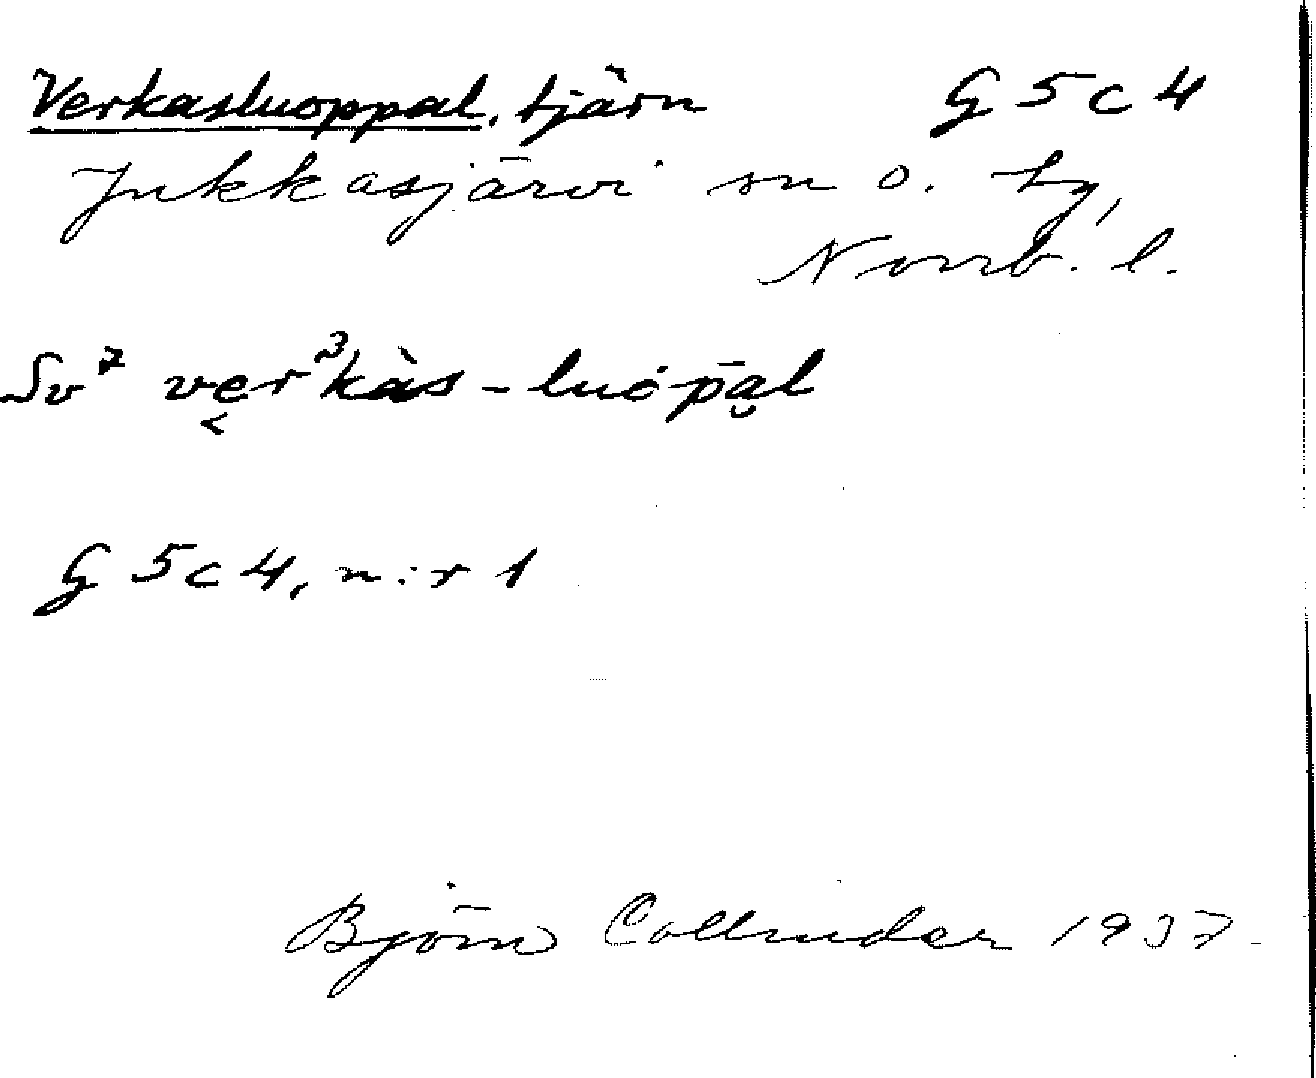 Verkasluoppal, tjärn G 5 c 4
Jukkasjärvi sn o. tg,
Norrb. l.
Sv⁷ ve̬r³kàs-luȯp̄a̮l
G 5 c 4, n:r 1
Björn Collinder 1937.